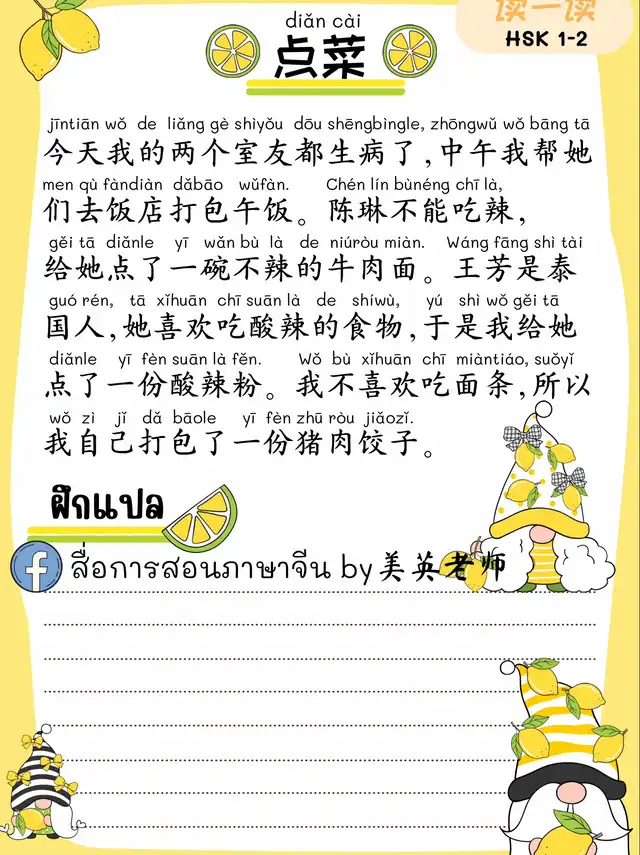 读一读
HSK 1-2
diǎn cài
点菜
jīntiān wǒ de liǎng gè shìyǒu dōu shēngbìngle, zhōngwǔ wǒ bāng tā
今天我的两个室友都生病了,中午我帮她
men qù fàndiàn dǎbāo wǔfàn. Chén lín bùnéng chī là,
们去饭店打包午饭。陈琳不能吃辣,
gěi tā diǎnle yī wǎn bù là de niúròu miàn. Wáng fāng shì tài
给她点了一碗不辣的牛肉面。王芳是泰
guó rén, tā xǐhuān chī suān là de shíwù, yú shì wǒ gěi tā
国人,她喜欢吃酸辣的食物,于是我给她
diǎnle yī fèn suān là fěn. Wǒ bù xǐhuān chī miàntiáo, suǒyǐ
点了一份酸辣粉。我不喜欢吃面条,所以
wǒ zì jǐ dǎ bāole yī fèn zhū ròu jiǎozi.
我自己打包了一份猪肉饺子。
ฝึกแปล
f สื่อการสอนภาษาจีน by美英老师